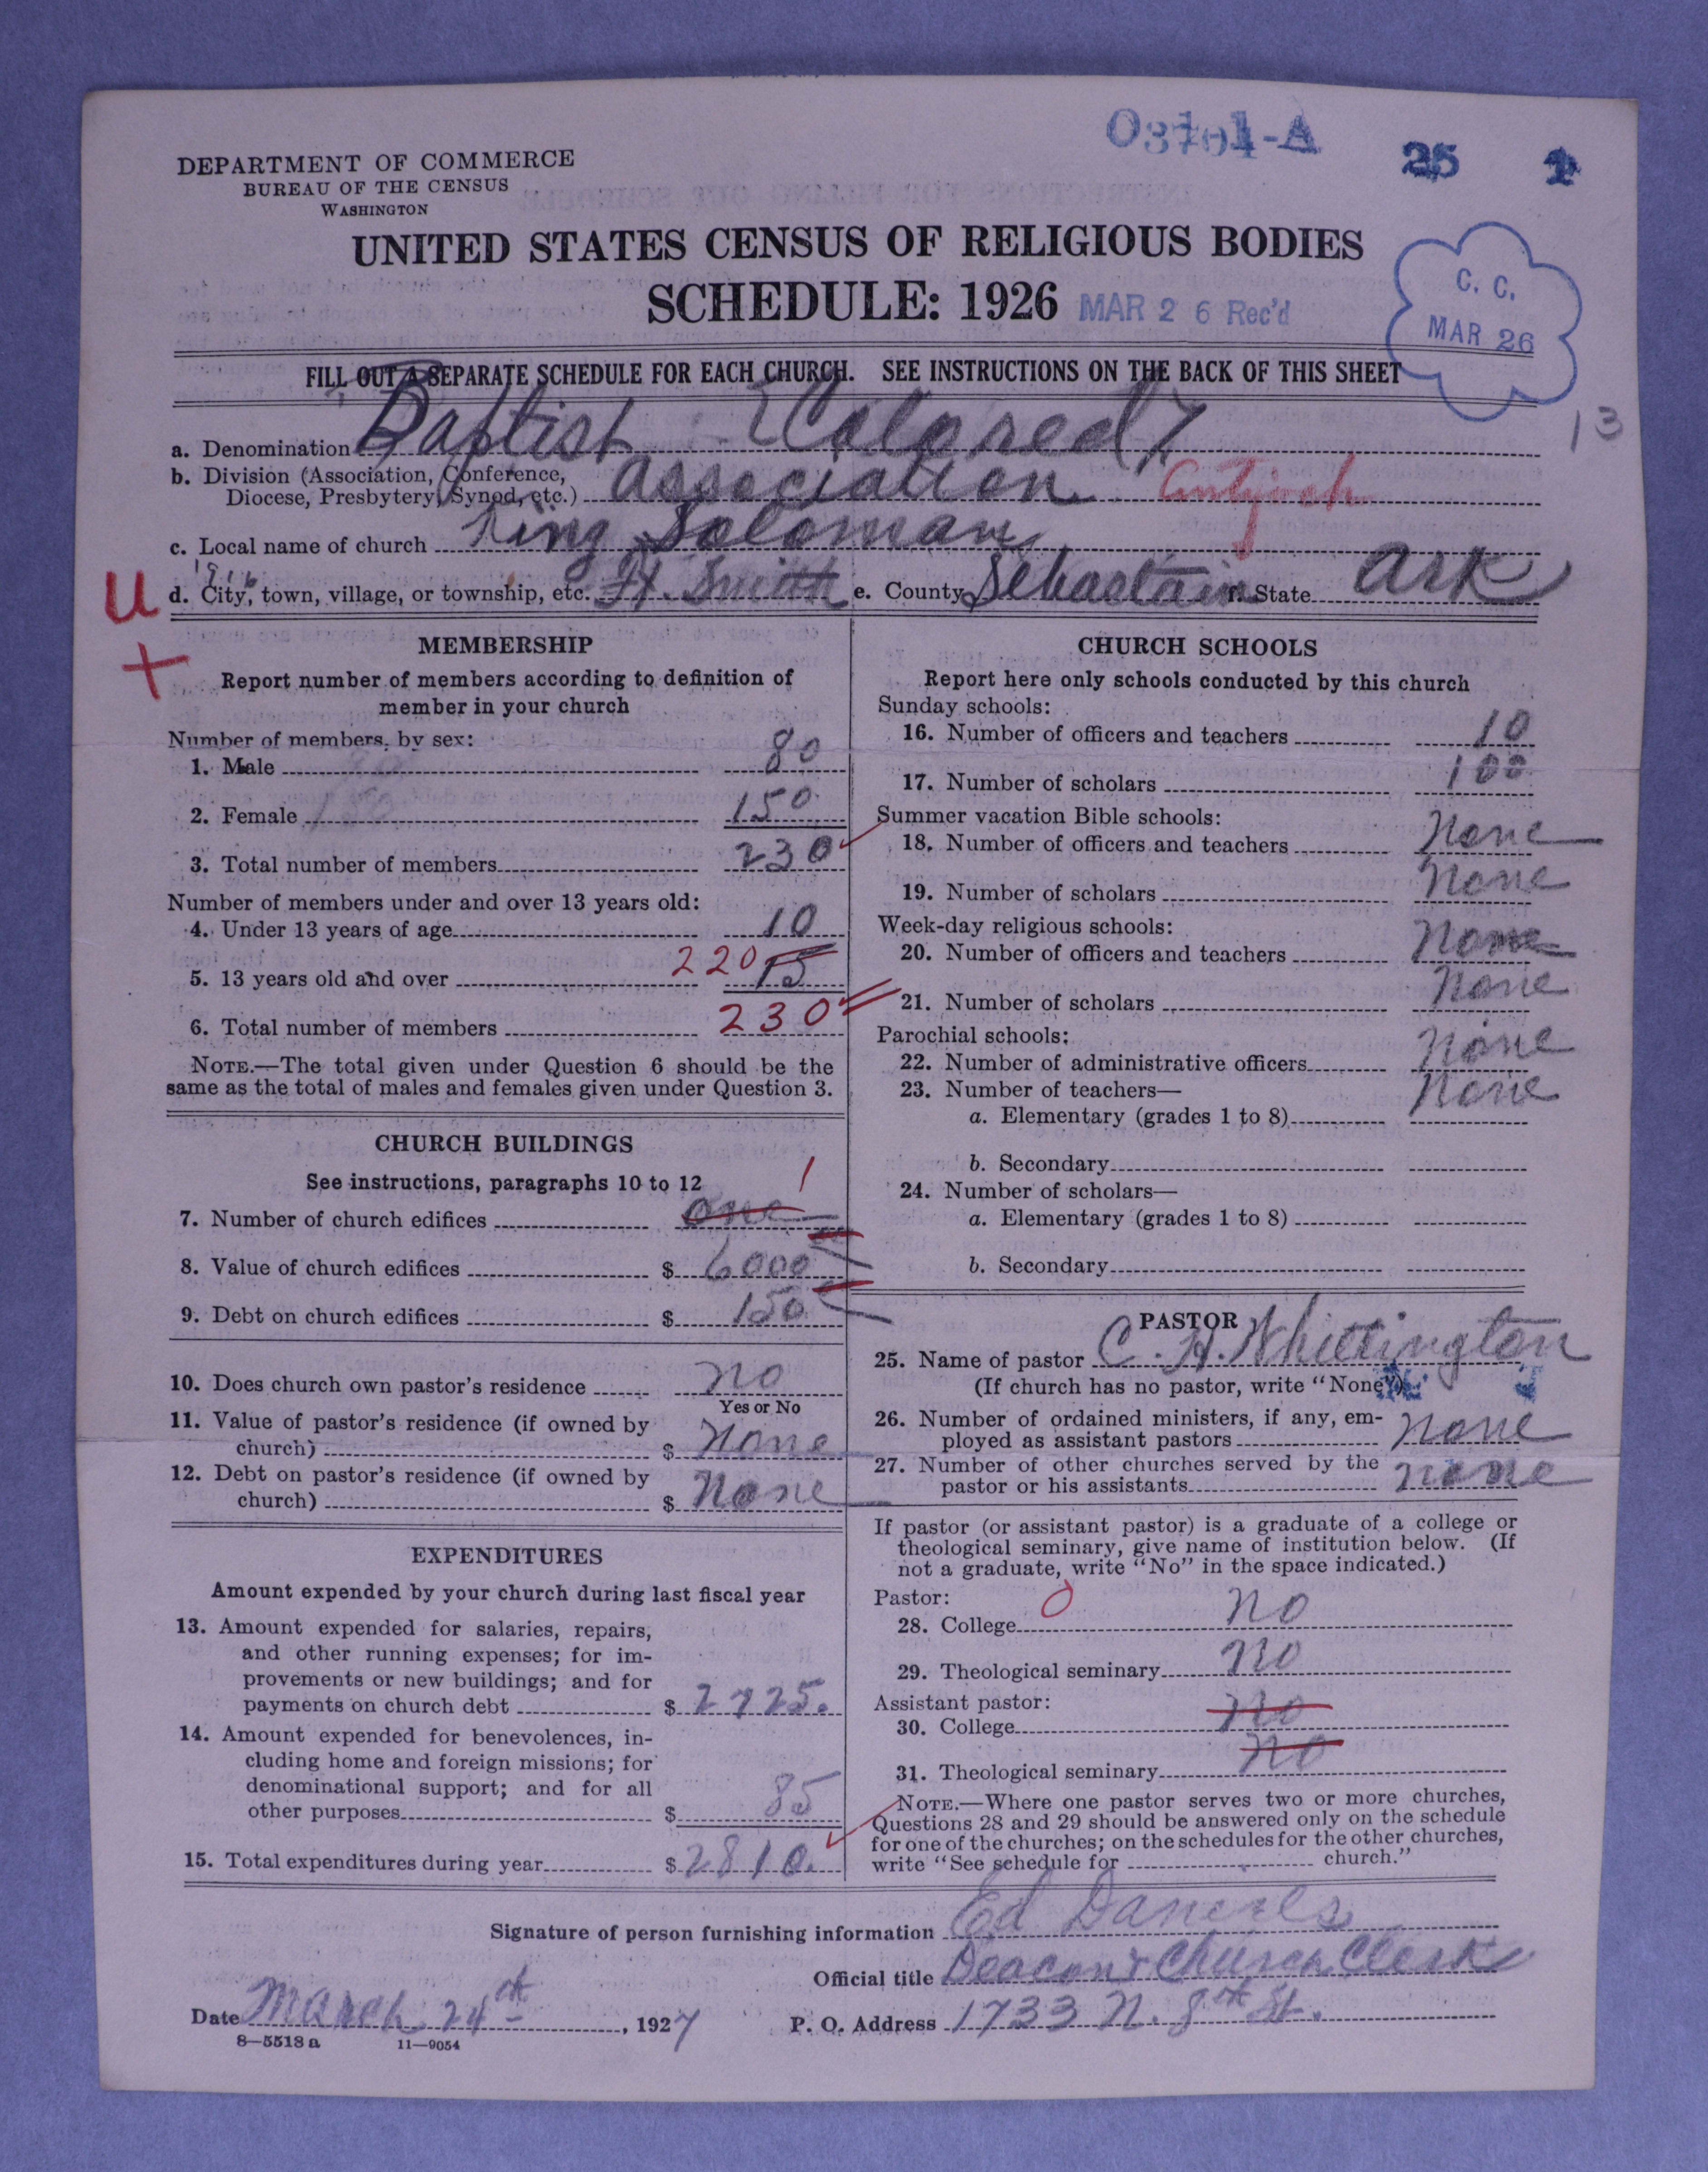 03701-A
25 1
DEPARTMENT OF COMMERCE
BUREAU OF THE CENSUS
WASHINGTON
UNITED STATES CENSUS OF RELIGIOUS BODIES
SCHEDULE: 1926 MAR 26 Rec'd
C. C.
MAR 26
FILL OUT A SEPARATE SCHEDULE FOR EACH CHURCH. SEE INSTRUCTIONS ON THE BACK OF THIS SHEET
13
a. Denomination Baptist Colored
b. Division (Association, Conference,
Diocese, Presbytery, Synod, etc.) Association Antioch
c. Local name of church King Soloman
1916
U d. City, town, village, or township, etc. Ft. Smith e. County Sebastain f. State Ark
+
MEMBERSHIP
Report number of members according to definition of
member in your church
Number of members, by sex:
1. Male 80
2. Female 150
3. Total number of members 230
Number of members under and over 13 years old:
4. Under 13 years of age 10
5. 13 years old and over 220 15
6. Total number of members 230
NOTE.—The total given under Question 6 should be the
same as the total of males and females given under Question 3.
CHURCH BUILDINGS
See instructions, paragraphs 10 to 12
7. Number of church edifices one 1
8. Value of church edifices $ 6000
9. Debt on church edifices $ 150
10. Does church own pastor's residence no
Yes or No
11. Value of pastor's residence (if owned by
church) $ None
12. Debt on pastor's residence (if owned by
church) $ None
EXPENDITURES
Amount expended by your church during last fiscal year
13. Amount expended for salaries, repairs,
and other running expenses; for im-
provements or new buildings; and for
payments on church debt $ 2725.
14. Amount expended for benevolences, in-
cluding home and foreign missions; for
denominational support; and for all
other purposes $ 85
15. Total expenditures during year $ 2810.
CHURCH SCHOOLS
Report here only schools conducted by this church
Sunday schools:
16. Number of officers and teachers 10
17. Number of scholars 100
Summer vacation Bible schools:
18. Number of officers and teachers None
19. Number of scholars None
Week-day religious schools:
20. Number of officers and teachers None
21. Number of scholars None
Parochial schools:
22. Number of administrative officers None
23. Number of teachers— None
a. Elementary (grades 1 to 8)
b. Secondary
24. Number of scholars—
a. Elementary (grades 1 to 8)
b. Secondary
PASTOR
25. Name of pastor C. H. Whittington
(If church has no pastor, write "None")
26. Number of ordained ministers, if any, em-
ployed as assistant pastors none
27. Number of other churches served by the
pastor or his assistants none
If pastor (or assistant pastor) is a graduate of a college or
theological seminary, give name of institution below. (If
not a graduate, write "No" in the space indicated.)
Pastor: 0
28. College no
29. Theological seminary no
Assistant pastor:
30. College no
31. Theological seminary no
NOTE.—Where one pastor serves two or more churches,
Questions 28 and 29 should be answered only on the schedule
for one of the churches; on the schedules for the other churches,
write "See schedule for church."
Signature of person furnishing information Ed Daniels
Official title Deacon & Church Clerk
Date March 24th, 1927 P. O. Address 1733 N. 8th St.
8—5518 a 11—9054